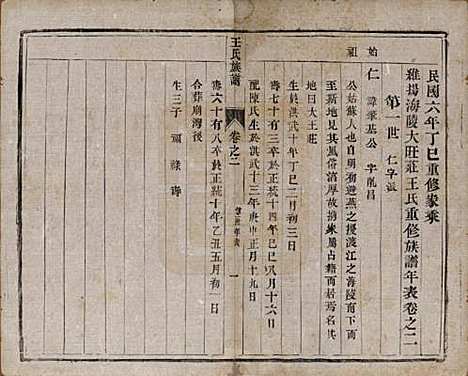 民國六年丁巳重修家乘
維揚海陵大旺莊王氏重修族譜年表卷之二
第一世 仁字派
始祖 仁 諱肇基公 字胤昌
公姑蘇人也自勇公始避燕之擾渡江之海陵南下而
至新地見其風俗清厚故捐來屬占籍而居焉因名其
地曰大王莊
生於洪武十年丁巳二月初三日
壽七十有三卒於正統十四年己巳八月十六日
配陳氏生於洪武十三年庚申正月十九日
壽六十有六卒於正統十年乙丑五月初一日
合葬廟灣後
生三子 福 祿 壽
王氏族譜
卷之二
一